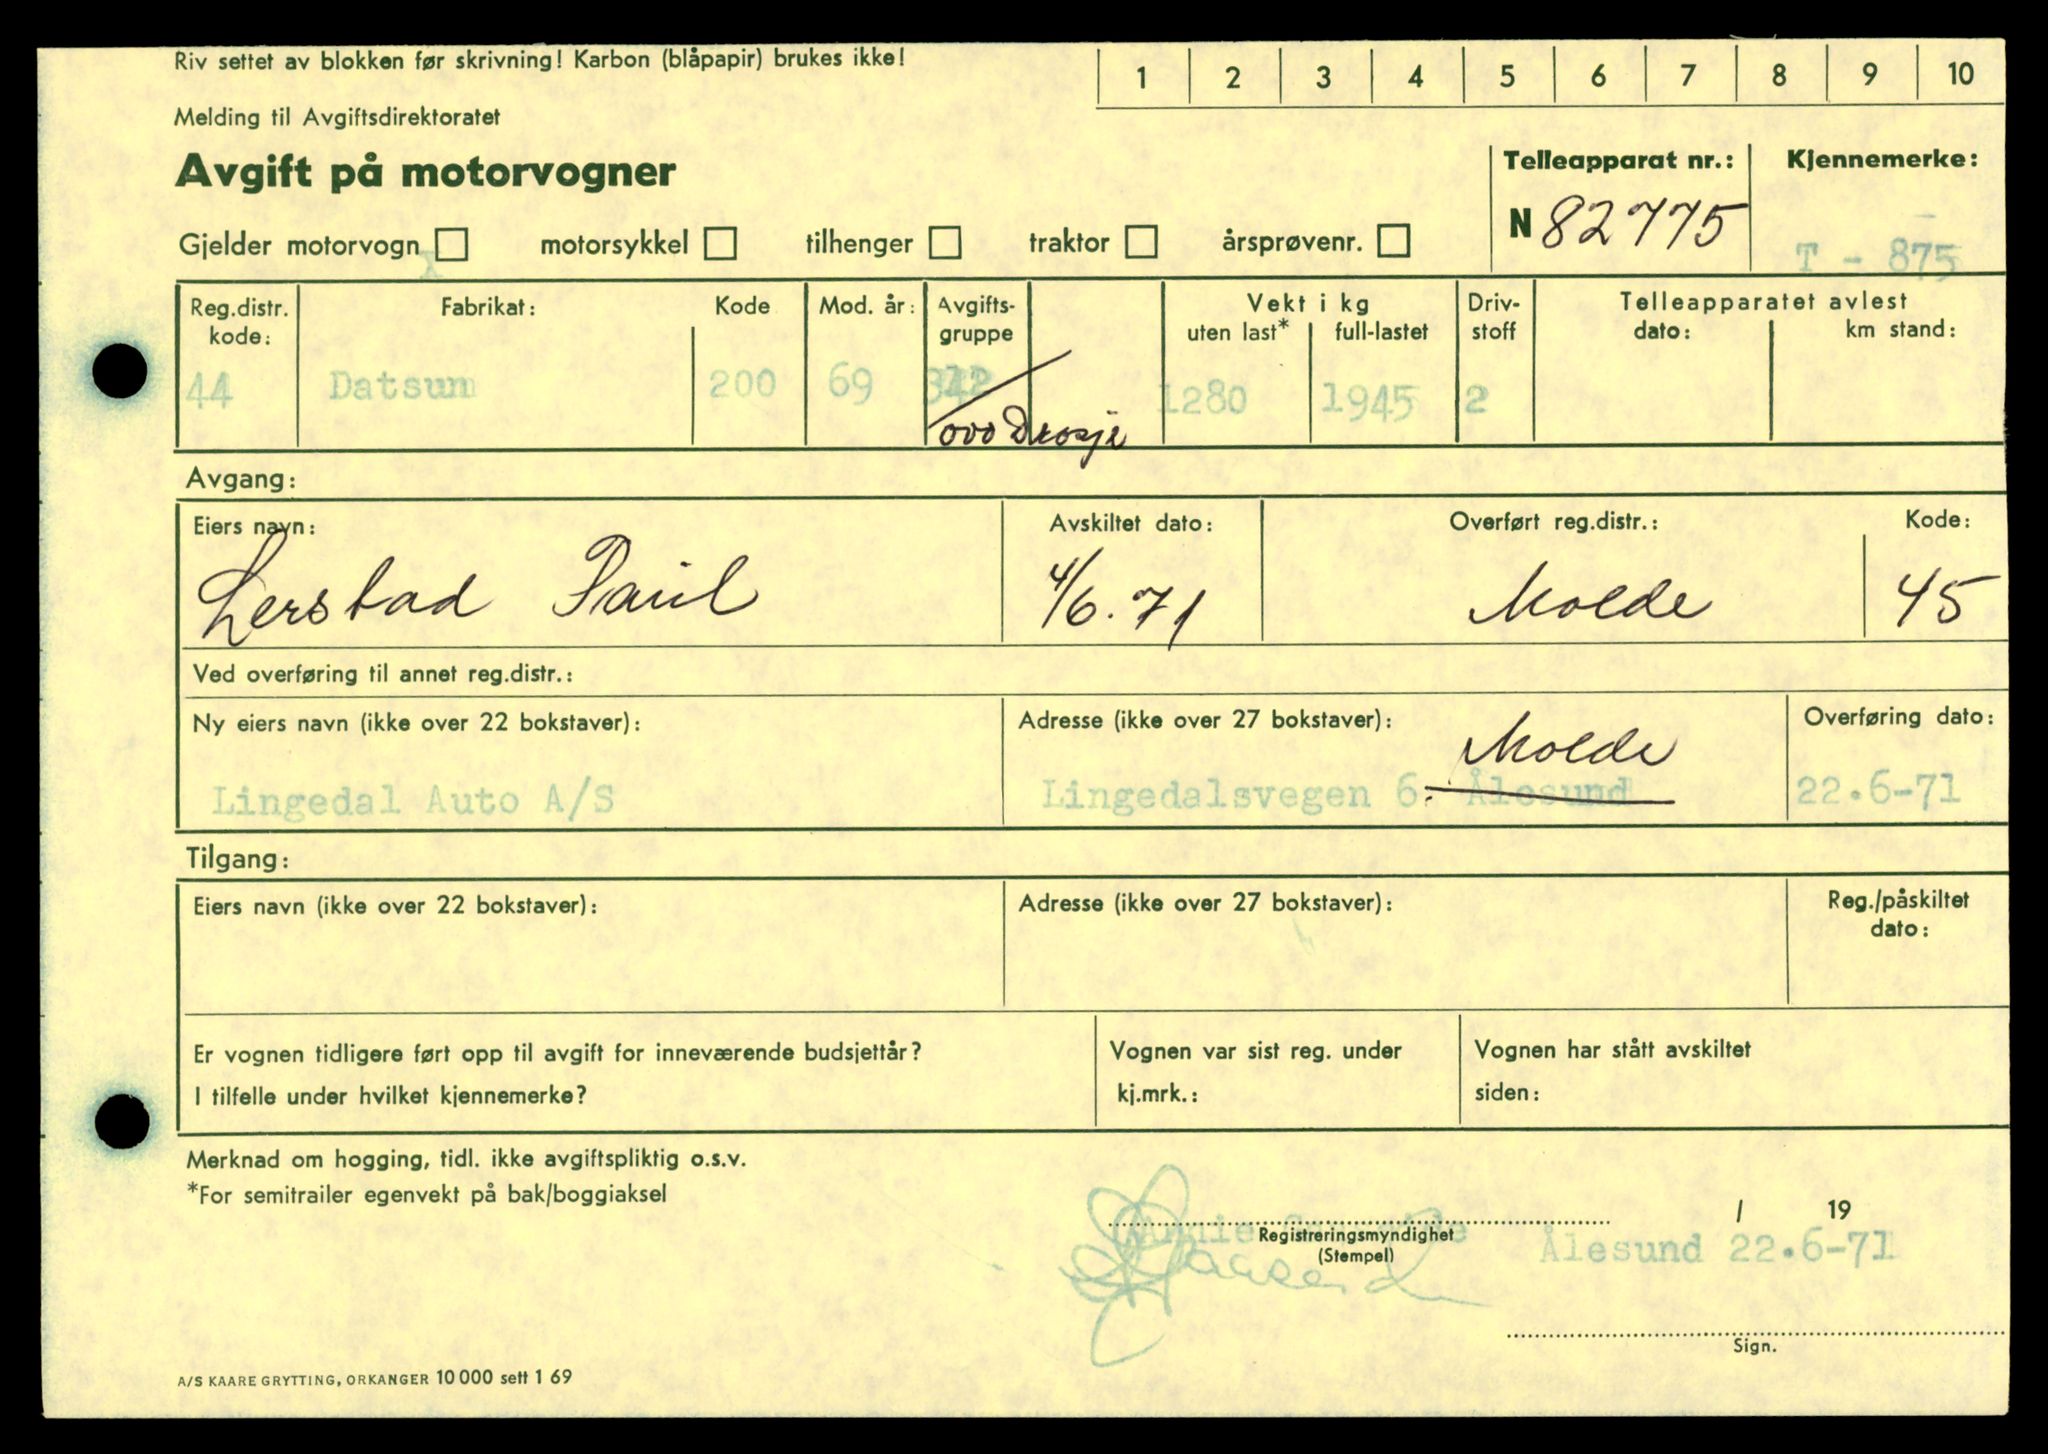 Riv settet av blokken før skrivning! Karbon (blåpapir) brukes ikke!
1 2 3 4 5 6 7 8 9 10
Melding til Avgiftsdirektoratet
Avgift på motorvogner
Telleapparat nr.: Kjennemerke:
N 82775 T - 875
Gjelder motorvogn X motorsykkel tilhenger traktor årsprøvenr.
Reg.distr. kode: Fabrikat: Kode Mod. år: Avgifts-gruppe Vekt i kg uten last* full-lastet Driv-stoff Telleapparatet avlest dato: km stand:
44 Datsun 200 69 1280 1945 2
000 Drosje
Avgang:
Eiers navn: Avskiltet dato: Overført reg.distr.: Kode:
Lerstad Paul 4/6.71 Molde 45
Ved overføring til annet reg.distr.:
Ny eiers navn (ikke over 22 bokstaver): Adresse (ikke over 27 bokstaver): Overføring dato:
Molde
Lingedal Auto A/S Lingedalsvegen 6. Ålesund 22.6-71
Tilgang:
Eiers navn (ikke over 22 bokstaver): Adresse (ikke over 27 bokstaver): Reg./påskiltet dato:
Er vognen tidligere ført opp til avgift for inneværende budsjettår? Vognen var sist reg. under Vognen har stått avskiltet
I tilfelle under hvilket kjennemerke? kj.mrk.: siden:
Merknad om hogging, tidl. ikke avgiftspliktig o.s.v.
*For semitrailer egenvekt på bak/boggiaksel
/ 19
Registreringsmyndighet
(Stempel)
Ålesund 22.6-71
Sign.
A/S KAARE GRYTTING, ORKANGER 10 000 sett 1 69